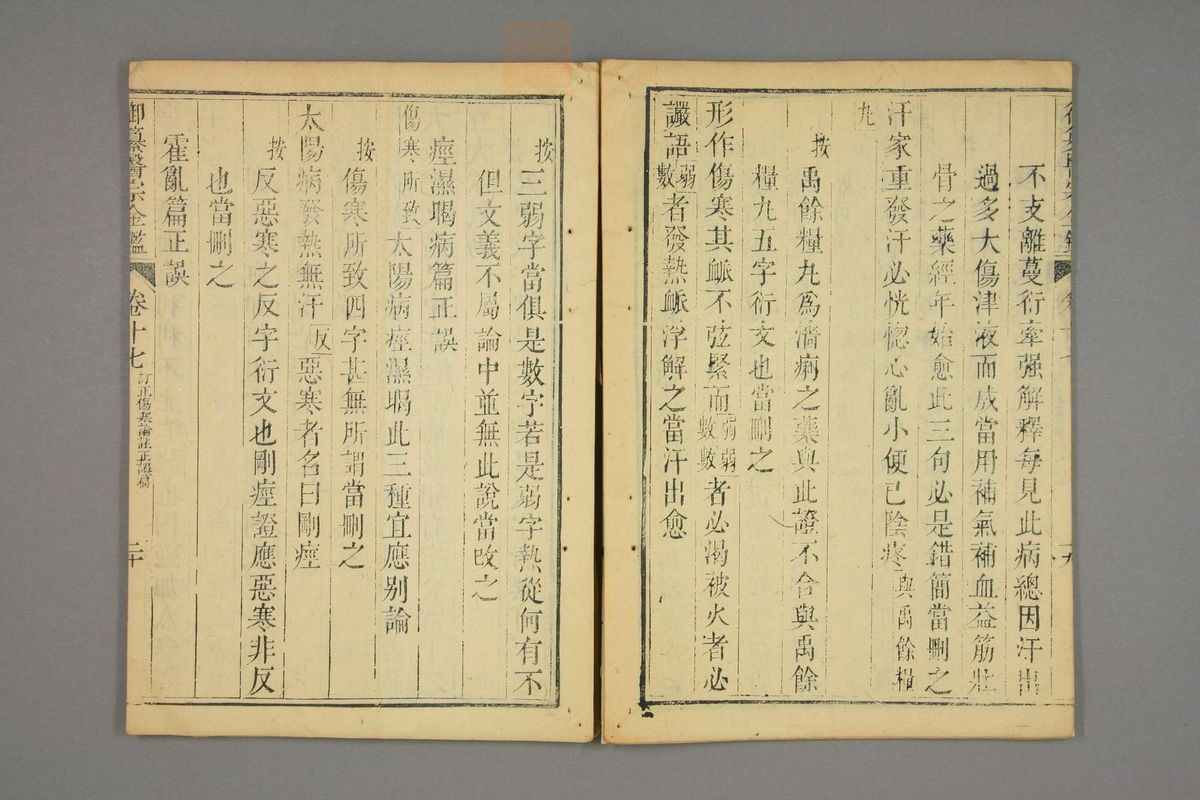 不支離蔓衍牽强解釋每見此病總因汗出
過多大傷津液而成當用補氣補血益筋壯
骨之藥經年始愈此三句必是錯簡當刪之
汗家重發汗必恍惚心亂小便已陰疼與禹餘糧
九
按禹餘糧丸爲濇痢之藥與此證不合與禹餘
糧丸五字衍文也當刪之
形作傷寒其脈不弦緊而弱數弱數者必渴被火者必
讝語弱數者發熱脈浮解之當汗出愈
按三弱字當俱是數字若是弱字熱從何有不
但文義不屬論中並無此說當改之
痙濕暍病篇正誤
傷寒所致太陽病痙濕暍此三種宜應别論
按傷寒所致四字甚無所謂當刪之
太陽病發熱無汗反惡寒者名曰剛痙
按反惡寒之反字衍文也剛痙證應惡寒非反
也當刪之
霍亂篇正誤
御纂醫宗金鑑 卷十七 訂正傷寒論註正誤篇 二十